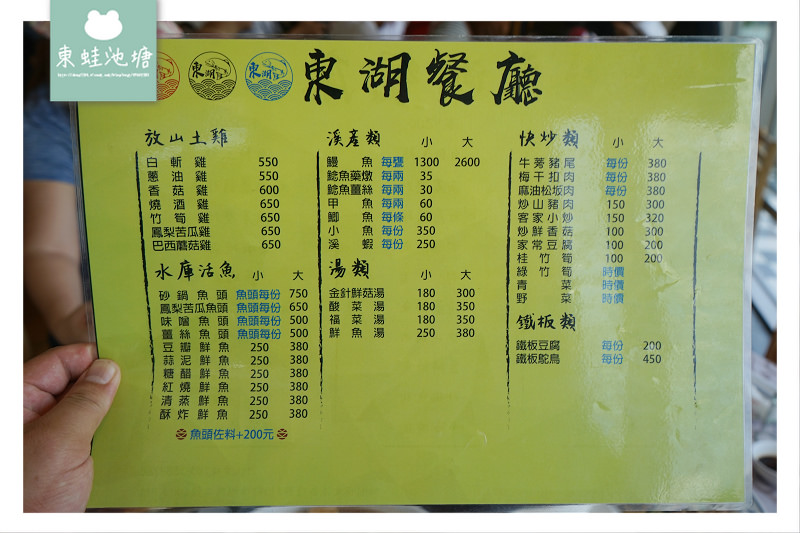 東蛙池塘
東湖
東湖
東湖餐廳
放山土雞
白斬雞 550
蔥油雞 550
香菇雞 600
燒酒雞 650
竹筍雞 650
鳳梨苦瓜雞 650
巴西蘑菇雞 650
水庫活魚 小 大
砂鍋魚頭 魚頭每份 750
鳳梨苦瓜魚頭 魚頭每份 650
味噌魚頭 魚頭每份 500
薑絲魚頭 魚頭每份 500
豆瓣鮮魚 250 380
蒜泥鮮魚 250 380
糖醋鮮魚 250 380
紅燒鮮魚 250 380
清蒸鮮魚 250 380
酥炸鮮魚 250 380
魚頭佐料+200元
溪產類 小 大
鰻魚 每甕 1300 2600
鯰魚藥燉 每兩 35
鯰魚薑絲 每兩 30
甲魚 每兩 60
鯽魚 每條 60
小魚 每份 350
溪蝦 每份 250
湯類 小 大
金針鮮菇湯 180 300
酸菜湯 180 350
福菜湯 180 350
鮮魚湯 250 380
快炒類 小 大
牛蒡豬尾 每份 380
梅干扣肉 每份 380
麻油松坂肉 每份 380
炒山豬肉 150 300
客家小炒 150 320
炒鮮香菇 100 300
家常豆腐 100 200
桂竹筍 100 200
綠竹筍 時價
青菜 時價
野菜 時價
鐵板類
鐵板豆腐 每份 200
鐵板鴕鳥 每份 450